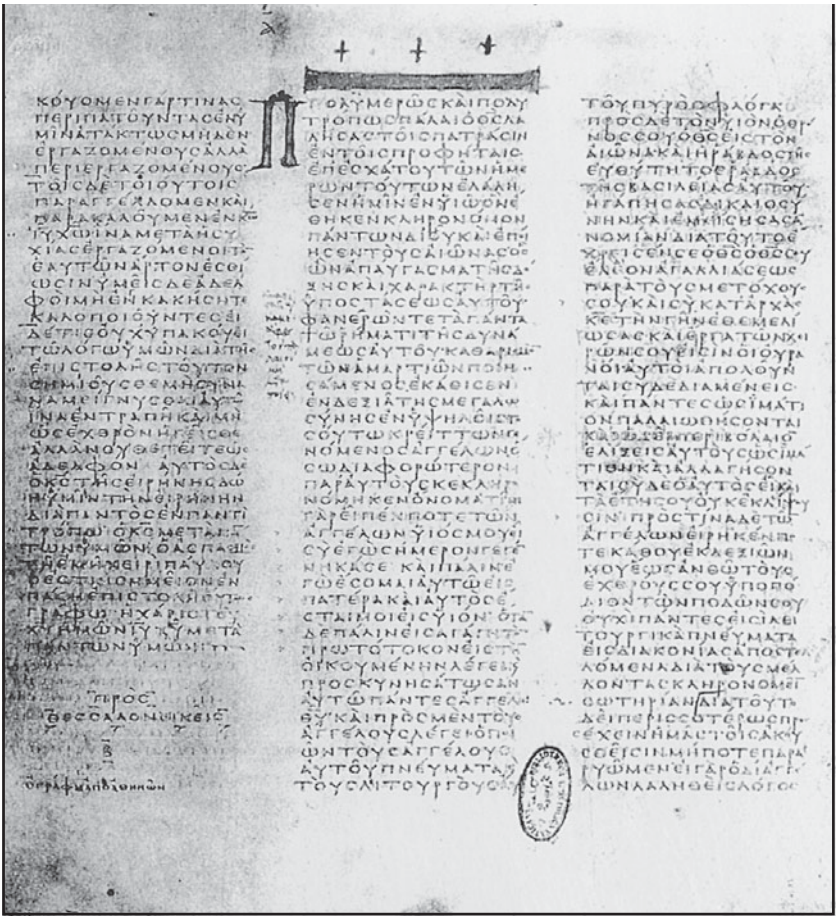 ΚΟΥΟΜΕΝΓΑΡΤΙΝΑϹ
ΠΕΡΙΠΑΤΟΥΝΤΑϹΕΝΥ
ΜΙΝΑΤΑΚΤΩϹΜΗΔΕΝ
ΕΡΓΑΖΟΜΕΝΟΥϹΑΛΛΑ
ΠΕΡΙΕΡΓΑΖΟΜΕΝΟΥϹ
ΤΟΙϹΔΕΤΟΙΟΥΤΟΙϹ
ΠΑΡΑΓΓΕΛΛΟΜΕΝΚΑΙ
ΠΑΡΑΚΑΛΟΥΜΕΝΕΝΚΩ
ΙΥΧΩΙΝΑΜΕΤΑΗϹΥ
ΧΙΑϹΕΡΓΑΖΟΜΕΝΟΙΤΟ
ΕΑΥΤΩΝΑΡΤΟΝΕϹΘΙ
ΩϹΙΝΥΜΕΙϹΔΕΑΔΕΛ
ΦΟΙΜΗΕΝΚΑΚΗϹΗΤΕ
ΚΑΛΟΠΟΙΟΥΝΤΕϹΕΙ
ΔΕΤΙϹΟΥΧΥΠΑΚΟΥΕΙ
ΤΩΛΟΓΩΥΜΩΝΔΙΑΤΗϹ
ΕΠΙϹΤΟΛΗϹΤΟΥΤΟΝ
ϹΗΜΙΟΥϹΘΕΜΗϹΥΝΑ
ΝΑΜΕΙΓΝΥϹΘΑΙΑΥΤΩ
ΙΝΑΕΝΤΡΑΠΗΚΑΙΜΗ
ΩϹΕΧΘΡΟΝΗΓΕΙϹΘΕ
ΑΛΛΑΝΟΥΘΕΤΕΙΤΕΩϹ
ΑΔΕΛΦΟΝ ΑΥΤΟϹΔΕ
ΟΚϹΤΗϹΕΙΡΗΝΗϹΔΩ
ΗΥΜΙΝΤΗΝΕΙΡΗΝΗΝ
ΔΙΑΠΑΝΤΟϹΕΝΠΑΝΤΙ
ΤΡΟΠΩ ΟΚϹΜΕΤΑΠΑ
ΤΩΝΥΜΩΝ ΟΑϹΠΑϹΜΟϹ
ΤΗΕΜΗΧΕΙΡΙΠΑΥΛΟΥ
ΟΕϹΤΙΝϹΗΜΕΙΟΝΕΝ
ΠΑϹΗΕΠΙϹΤΟΛΗΟΥΤΩ
ΓΡΑΦΩ ΗΧΑΡΙϹΤΟΥ
ΚΥΗΜΩΝΙΥΧΥΜΕΤΑ
ΠΑΝΤΩΝΥΜΩΝ
ΠΡΟϹ
ΘΕϹϹΑΛΟΝΙΚΕΙϹ
Β
ΠΟΛΥΜΕΡΩϹΚΑΙΠΟΛΥ
ΤΡΟΠΩϹΠΑΛΑΙΟΘϹΛΑ
ΛΗϹΑϹΤΟΙϹΠΑΤΡΑϹΙΝ
ΕΝΤΟΙϹΠΡΟΦΗΤΑΙϹ
ΕΠΕϹΧΑΤΟΥΤΩΝΗΜΕ
ΡΩΝΤΟΥΤΩΝΕΛΑΛΗ
ϹΕΝΗΜΙΝΕΝΥΙΩΟΝΕ
ΘΗΚΕΝΚΛΗΡΟΝΟΜΟΝ
ΠΑΝΤΩΝΔΙΟΥΚΑΙΕΠΟΙ
ΗϹΕΝΤΟΥϹΑΙΩΝΑϹΟϹ
ΩΝΑΠΑΥΓΑϹΜΑΤΗϹΔΟ
ΞΗϹΚΑΙΧΑΡΑΚΤΗΡΤΗϹ
ΥΠΟϹΤΑϹΕΩϹΑΥΤΟΥ
ΦΑΝΕΡΩΝΤΕΤΑΠΑΝΤΑ
ΤΩΡΗΜΑΤΙΤΗϹΔΥΝΑ
ΜΕΩϹΑΥΤΟΥΚΑΘΑΡΙϹΜΟ
ΤΩΝΑΜΑΡΤΙΩΝΠΟΙΗ
ϹΑΜΕΝΟϹΕΚΑΘΙϹΕΝ
ΕΝΔΕΞΙΑΤΗϹΜΕΓΑΛΩ
ϹΥΝΗϹΕΝΥΨΗΛΟΙϹΤΟ
ϹΟΥΤΩΚΡΕΙΤΤΩΝΓΕ
ΝΟΜΕΝΟϹΑΓΓΕΛΩΝΟ
ϹΩΔΙΑΦΟΡΩΤΕΡΟΝ
ΠΑΡΑΥΤΟΥϹΚΕΚΛΗΡΟ
ΝΟΜΗΚΕΝΟΝΟΜΑΤΙΝΙ
ΓΑΡΕΙΠΕΝΠΟΤΕΤΩΝ
ΑΓΓΕΛΩΝΥΙΟϹΜΟΥΕΙ
ϹΥΕΓΩϹΗΜΕΡΟΝΓΕΓΕ
ΝΝΗΚΑϹΕ ΚΑΙΠΑΛΙΝΕ
ΓΩΕϹΟΜΑΙΑΥΤΩΕΙϹ
ΠΑΤΕΡΑΚΑΙΑΥΤΟϹΕ
ϹΤΑΙΜΟΙΕΙϹΥΙΟΝ ΟΤΑ
ΔΕΠΑΛΙΝΕΙϹΑΓΑΓΗΤΟ
ΠΡΩΤΟΤΟΚΟΝΕΙϹΤΗ
ΟΙΚΟΥΜΕΝΗΝΛΕΓΕΙΚΑΙ
ΠΡΟϹΚΥΝΗϹΑΤΩϹΑΝ
ΑΥΤΩΠΑΝΤΕϹΑΓΓΕΛΟΙ
ΘΥΚΑΙΠΡΟϹΜΕΝΤΟΥϹ
ΑΓΓΕΛΟΥϹΛΕΓΕΙΟΠΟΙ
ΩΝΤΟΥϹΑΓΓΕΛΟΥϹ
ΑΥΤΟΥΠΝΕΥΜΑΤΑΚΑΙ
ΤΟΥϹΛΙΤΟΥΡΓΟΥϹΑΥ
ΤΟΥΠΥΡΟϹΦΛΟΓΑ
ΠΡΟϹΔΕΤΟΝΥΙΟΝΟΘΡΟ
ΝΟϹϹΟΥΟΘϹΕΙϹΤΟΝ
ΑΙΩΝΑΚΑΙΗΡΑΒΔΟϹΤΗϹ
ΕΥΘΥΤΗΤΟϹΡΑΒΔΟϹ
ΤΗϹΒΑϹΙΛΕΙΑϹΑΥΤΟΥ
ΗΓΑΠΗϹΑϹΔΙΚΑΙΟϹΥ
ΝΗΝΚΑΙΕΜΙϹΗϹΑϹΑ
ΝΟΜΙΑΝΔΙΑΤΟΥΤΟΕ
ΧΡΕΙϹΕΝϹΕΟΘϹΟΘϹϹΟΥ
ΕΛΕΟΝΑΓΑΛΛΙΑϹΕΩϹ
ΠΑΡΑΤΟΥϹΜΕΤΟΧΟΥϹ
ϹΟΥΚΑΙϹΥΚΑΤΑΡΧΑϹ
ΚΕΤΗΝΓΗΝΕΘΕΜΕΛΙ
ΩϹΑϹΚΑΙΕΡΓΑΤΩΝΧΕΙ
ΡΩΝϹΟΥΕΙϹΙΝΟΙΟΥΡΑ
ΝΟΙΑΥΤΟΙΑΠΟΛΟΥΝ
ΤΑΙϹΥΔΕΔΙΑΜΕΝΕΙϹ
ΚΑΙΠΑΝΤΕϹΩϹΙΜΑΤΙ
ΟΝΠΑΛΑΙΩΘΗϹΟΝΤΑΙ
ΚΑΙΩϹΕΙΠΕΡΙΒΟΛΑΙΟ
ΕΛΙΞΕΙϹΑΥΤΟΥϹΩϹΙΜΑ
ΤΙΟΝΚΑΙΑΛΛΑΓΗϹΟΝ
ΤΑΙϹΥΔΕΟΑΥΤΟϹΕΙΚΑΙ
ΤΑΕΤΗϹΟΥΟΥΚΕΚΛΙΨΟΥ
ϹΙΝ ΠΡΟϹΤΙΝΑΔΕΤΩ
ΑΓΓΕΛΩΝΕΙΡΗΚΕΝΠΟ
ΤΕΚΑΘΟΥΕΚΔΕΞΙΩΝ
ΜΟΥΕΩϹΑΝΘΩΤΟΥϹ
ΕΧΘΡΟΥϹϹΟΥΥΠΟΠΟ
ΔΙΟΝΤΩΝΠΟΔΩΝϹΟΥ
ΟΥΧΙΠΑΝΤΕϹΕΙϹΙΛΕΙ
ΤΟΥΡΓΙΚΑΠΝΕΥΜΑΤΑ
ΕΙϹΔΙΑΚΟΝΙΑϹΑΠΟϹΤΕΛ
ΛΟΜΕΝΑΔΙΑΤΟΥϹΜΕΛ
ΛΟΝΤΑϹΚΛΗΡΟΝΟΜΕΙ
ϹΩΤΗΡΙΑΝΔΙΑΤΟΥΤΟ
ΔΕΙΠΕΡΙϹϹΟΤΕΡΩϹΠΡΟϹ
ΕΧΕΙΝΗΜΑϹΤΟΙϹΑΚΟΥ
ϹΘΕΙϹΙΝΜΗΠΟΤΕΠΑΡΑ
ΡΥΩΜΕΝΕΙΓΑΡΟΔΙΑΓΓΕ
ΛΩΝΛΑΛΗΘΕΙϹΛΟΓΟϹ